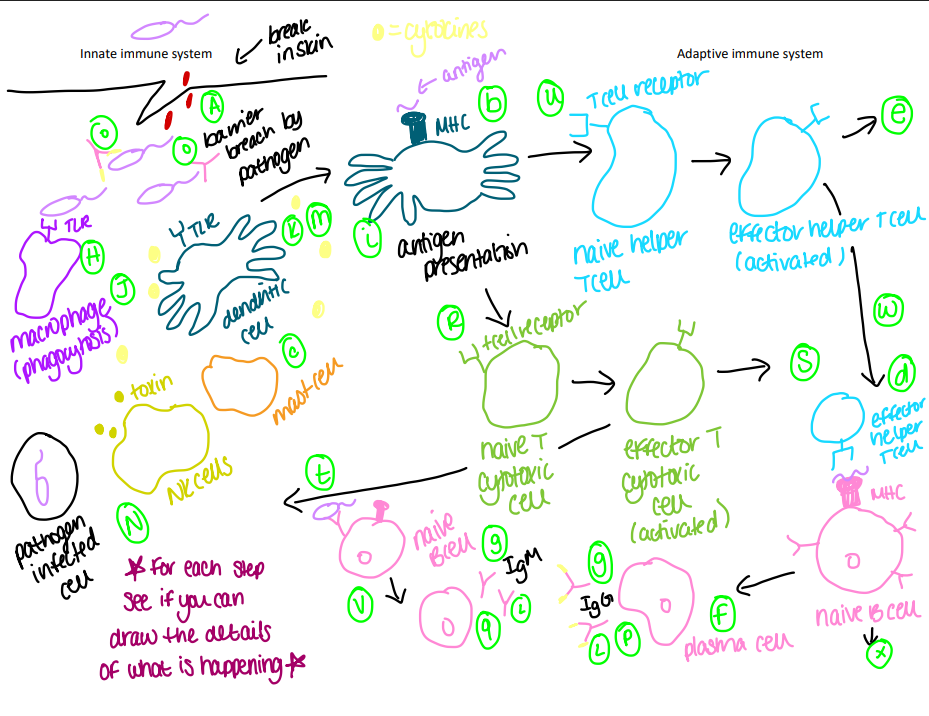 Innate immune system
break
in skin
o = cytocines
Adaptive immune system
antigen
A
barrier
breach by
pathogen
o
o
MHC
b
u
T cell receptor
e
TLR
H
J
macrophage
(phagocytosis)
TLR
K
m
dendritic
cell
i
antigen
presentation
naive helper
T cell
effector helper T cell
(activated)
w
d
effector
helper
T cell
MHC
R
t cell receptor
S
c
mast cell
toxin
NK cells
N
pathogen
infected
cell
naive T
cytotoxic
cell
effector T
cytotoxic
cell
(activated)
t
naive
B cell
g
IgM
V
q
L
g
IgG
L
P
f
plasma cell
naive B cell
x
* For each step
see if you can
draw the details
of what is happening *